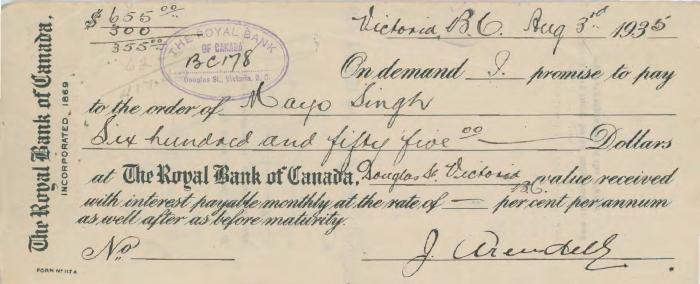 $ 655 00
300
355 00
Victoria, B.C. Aug 3rd 1935
THE ROYAL BANK
OF CANADA
BC178
Douglas St., Victoria, B. C.
On demand I promise to pay
to the order of Mayo Singh
Six hundred and fifty five 00 Dollars
at The Royal Bank of Canada, Douglas St. Victoria B.C. value received
with interest payable monthly at the rate of — per cent per annum
as well after as before maturity.
No.
J.
The Royal Bank of Canada,
INCORPORATED 1869
FORM No 117 A